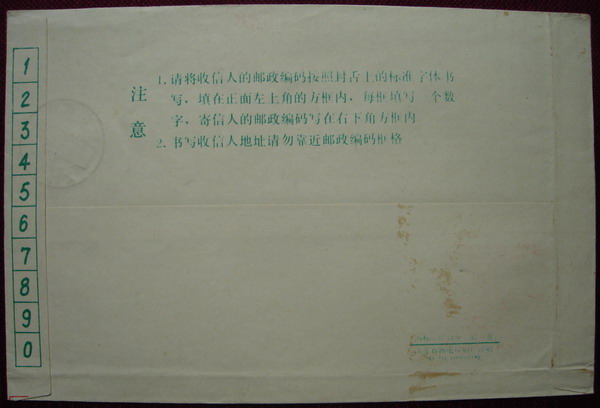 1
2
3
4
5
6
7
8
9
0
注意
1. 请将收信人的邮政编码按照封舌上的标准字体书
写，填在正面左上角的方框内，每框填写一个数
字，寄信人的邮政编码写在右下角方框内
2. 书写收信人地址请勿靠近邮政编码框格